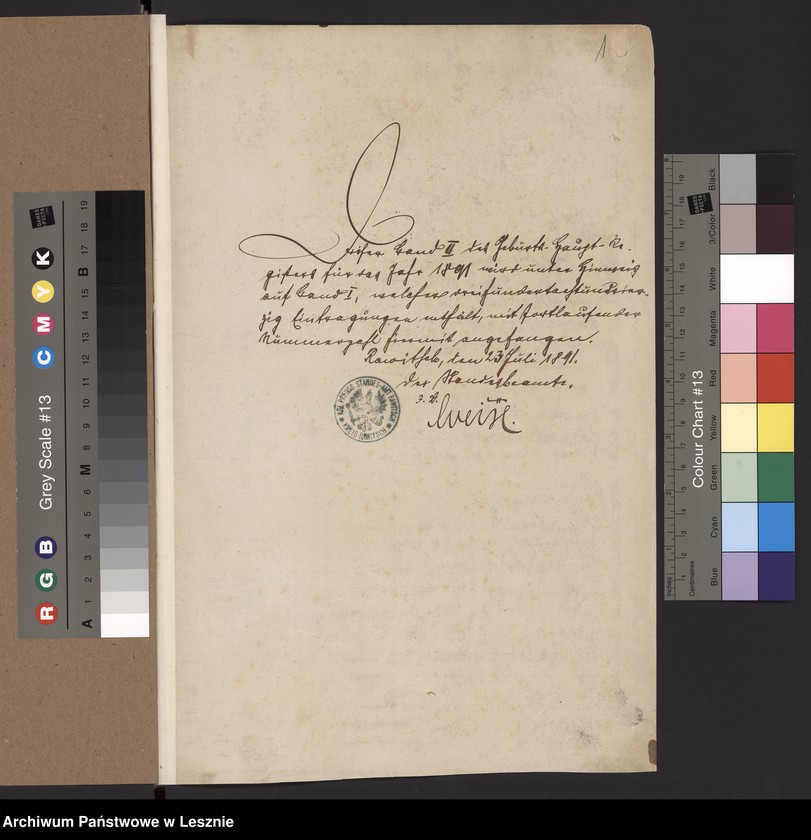 1
Dieser Band II des Geburts-Haupt-Re-
gisters für das Jahr 1891 wird unter Hinweis
auf Band I, welcher dreihundertachtundvier-
zig Eintragungen enthält, mit fortlaufender
Nummerzahl hiermit angefangen.
Rawitsch, den 23 Juli 1891.
Der Standesbeamte.
J. V.
Weiß.
KÖN. PREUSS. STANDES-AMT RAWITSCH
KREIS RAWITSCH
Grey Scale #13
R G B C M Y K
A 1 2 3 4 5 6 M 8 9 10 11 12 13 14 15 B 17 18 19
DANES
PICTA
.COM
Colour Chart #13
Blue Cyan Green Yellow Red Magenta White 3/Color Black
Inches
Centimetres
Archiwum Państwowe w Lesznie